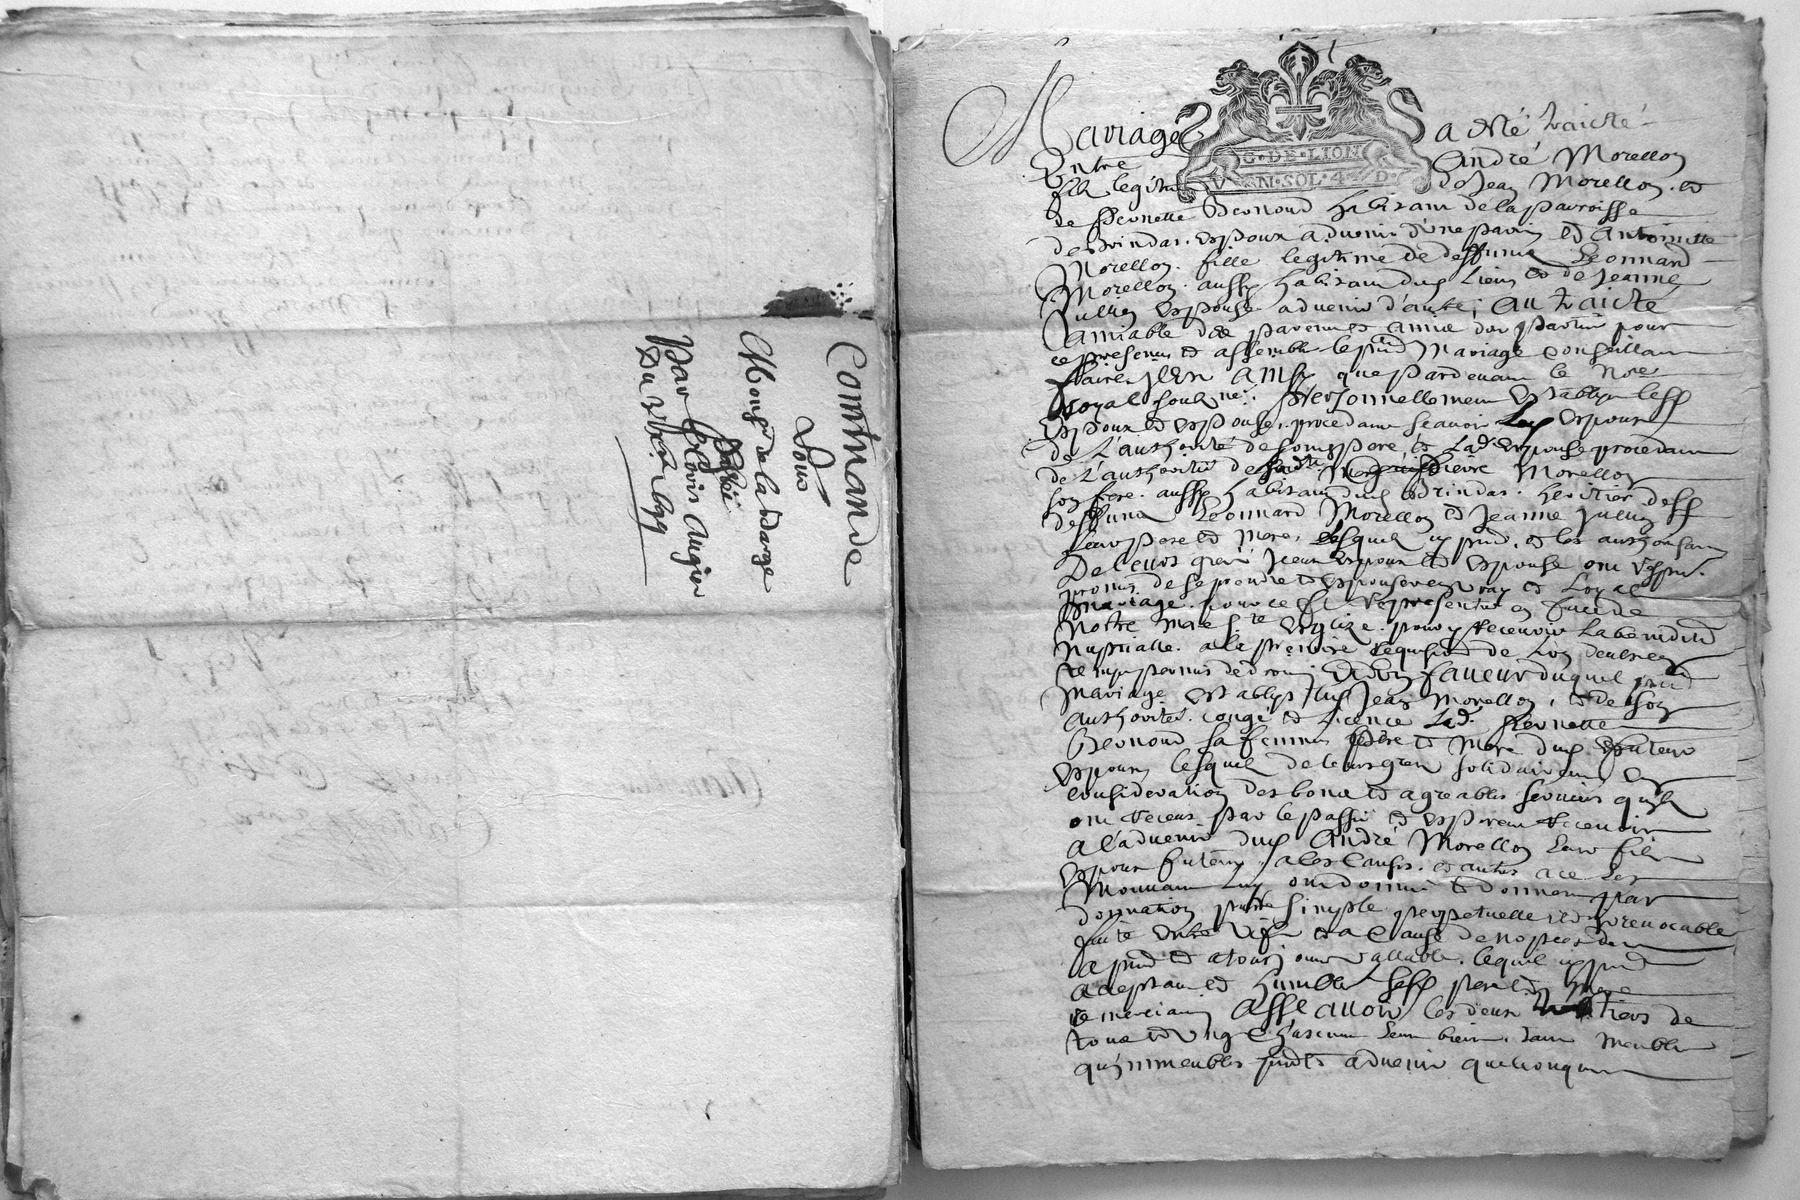 Commande
Pour
Mons.r de la barge
Par Clovis Augier
Du
Mariage a esté traicté
G·DE·LION
VN·SOL·4·D·
Entre André Morellon
filz legitime de Jean Morellon et
de Pernette Beonond habitans de la parroisse
de Brindas espoux aduenir d'une part et Anthoinette
Morellon fille legitime de deffunct Leonnard
Morellon aussy habitant dud lieu et de Jeanne
Jullien espouse aduenir d'autre, au traicté
amiable des parens et amis des parties pour
ce presens et assemblés le pnt mariage conseillans
faire. Est ainsy que pardeuant le No.re
royal soubsigné Personnellement establys lesd
espoux et espouse, procedant scauoir led espoux
de l'authorité de son pere et lad espouse procedant
de l'authorité de Pierre Morellon
son frere aussy habitant dud Brindas heritier desd
deffunctz Leonnard Morellon et Jeanne Jullien
leur pere et mere, lesquels icy pnt et les authorisans
De leurs grés iceux espoux et espouse ont respect.
promis de se prendre et espouser en vray et Loyal
mariage pour ce se representer en face de
Nostre mere S.te Esglize pour y receuoir la benediction
nuptialle a la premiere requisition de l'un d'eulx
temps permis de droit, Et en faueur duquel pnt
mariage establys led Jean Morellon, et de son
authorité congé et licence lad. Pernette
Beonond sa femme pere et mere dud
espoux lesquels de leurs grés solidairement en
consideration des bons et agreables seruices qu'ilz
ont receus par le passé et esperent receuoir
a l'aduenir dud André Morellon leur filz
espoux futeur, a les causes et autres a ce les
Mouuans luy ont donné et donnent par
donnation pure simple perpetuelle et irreuocable
faite entre vifz et a cause de nopces des
a pnt et a tousjours vallable lequel icy pnt
aceptant et humblement sesd pere et mere
remerciant Assauoir les deux tiers de
tous et vng chascuns leurs biens tant meubles
qu'immeubles pnts et aduenir quelconques